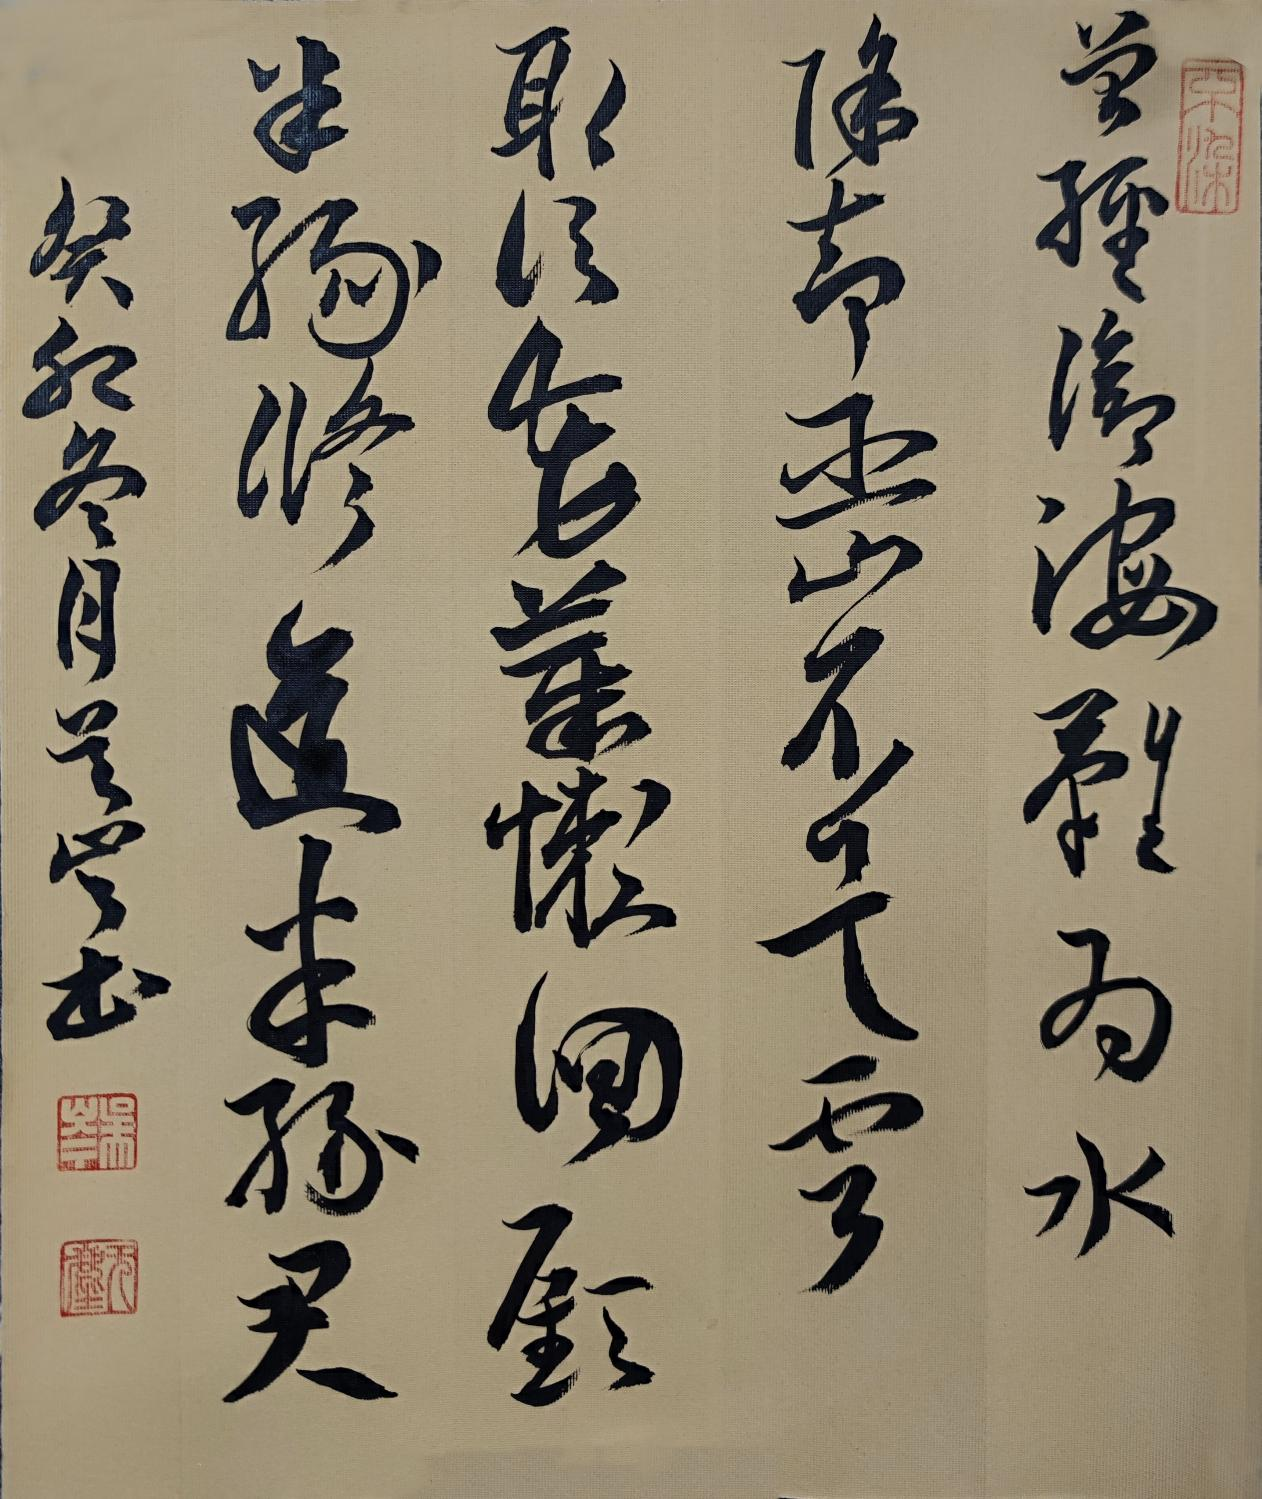 曾經滄海難為水
除却巫山不是雲
取次花叢懶回顧
半緣修道半緣君
癸卯冬月吳岑书
吳岑